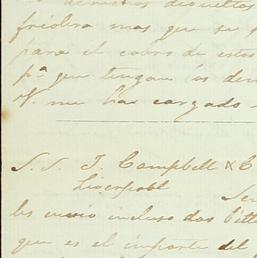 friolera mas que se
para el cobro de estos
pª que tengan los
V. me has cargado
S. S. J. Campbell & C
Liverpool
les envio incluso dos
que es el importe del